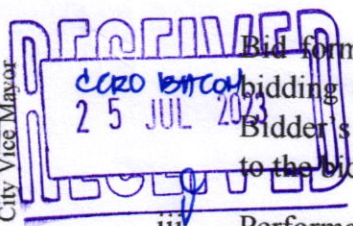 City Vice Mayor
RECEIVED
CCRO BATCOM
25 JUL 2023
Bid form
bidding
Bidder's
to the bid
iii Performa